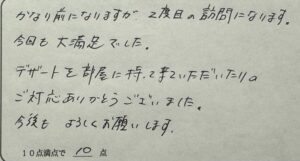 かなり前になりますが、2度目の訪問になります。
今回も大満足でした。
デザートを部屋に持って来ていただいたりの
ご対応ありがとうございました。
今後もよろしくお願いします。
10点満点で 10 点